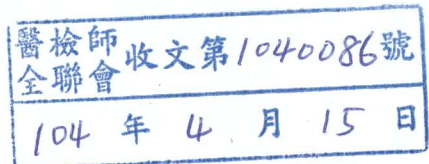 醫檢師全聯會收文第1040086號
104年4月15日